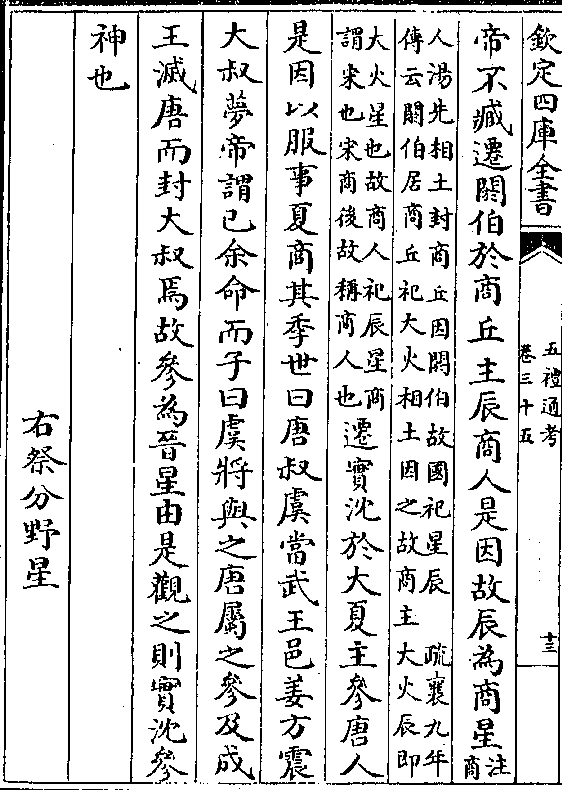 欽定四庫全書
五禮通考
卷三十五
十三
帝不臧遷閼伯於商丘主辰商人是因故辰為商星
注
商
人湯先相土封商丘因閼伯故國祀星辰 疏襄九年
傳云閼伯居商丘祀大火相土因之故商主大火辰即
大火星也故商人祀辰星商
謂宋也宋商後故稱商人也
遷實沈於大夏主參唐人
是因以服事夏商其季世曰唐叔虞當武王邑姜方震
大叔夢帝謂已余命而子曰虞將與之唐屬之參及成
王滅唐而封大叔焉故參為晉星由是觀之則實沈參
神也
右祭分野星